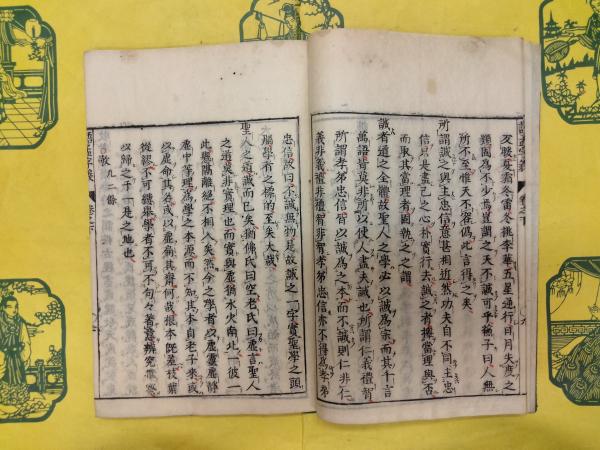 冬暖夏霜冬雷冬桃李華五星逆行日月失度之
類固為不少焉豈謂之天不誠可乎蘇子曰人無
所不至惟天不容偽此言得之矣
所謂誠之與主忠信意甚相近然功夫自不同主忠
信只是盡己之心朴實行去誠之者擇當理與否
而取其當理者固執之之謂
誠者道之全體故聖人之學必以誠為宗而其千言
萬語皆莫非所以使人盡夫誠也所謂仁義禮智
所謂孝弟忠信皆以誠為之本而不誠則仁非仁
義非義禮非禮智非智孝弟忠信亦不得為孝弟
忠信故曰不誠無物是故誠之一字實聖學之頭
腦學者之標的至矣大哉
聖人之道誠而已矣猶佛氏曰空老氏曰虛言聖人
之道莫非實理也而實與虛猶水火南北一彼一
此懸隔離絕不相入矣然今之學者以虛靈虛靜
虛中等理為學之本源而不知其本自老子來或
以虛命其名或以虛扁其齋何哉根本既差枝葉
從繆不可舉學者不可不句々著意辨究
以歸之于一是之地也
敬 凡二條